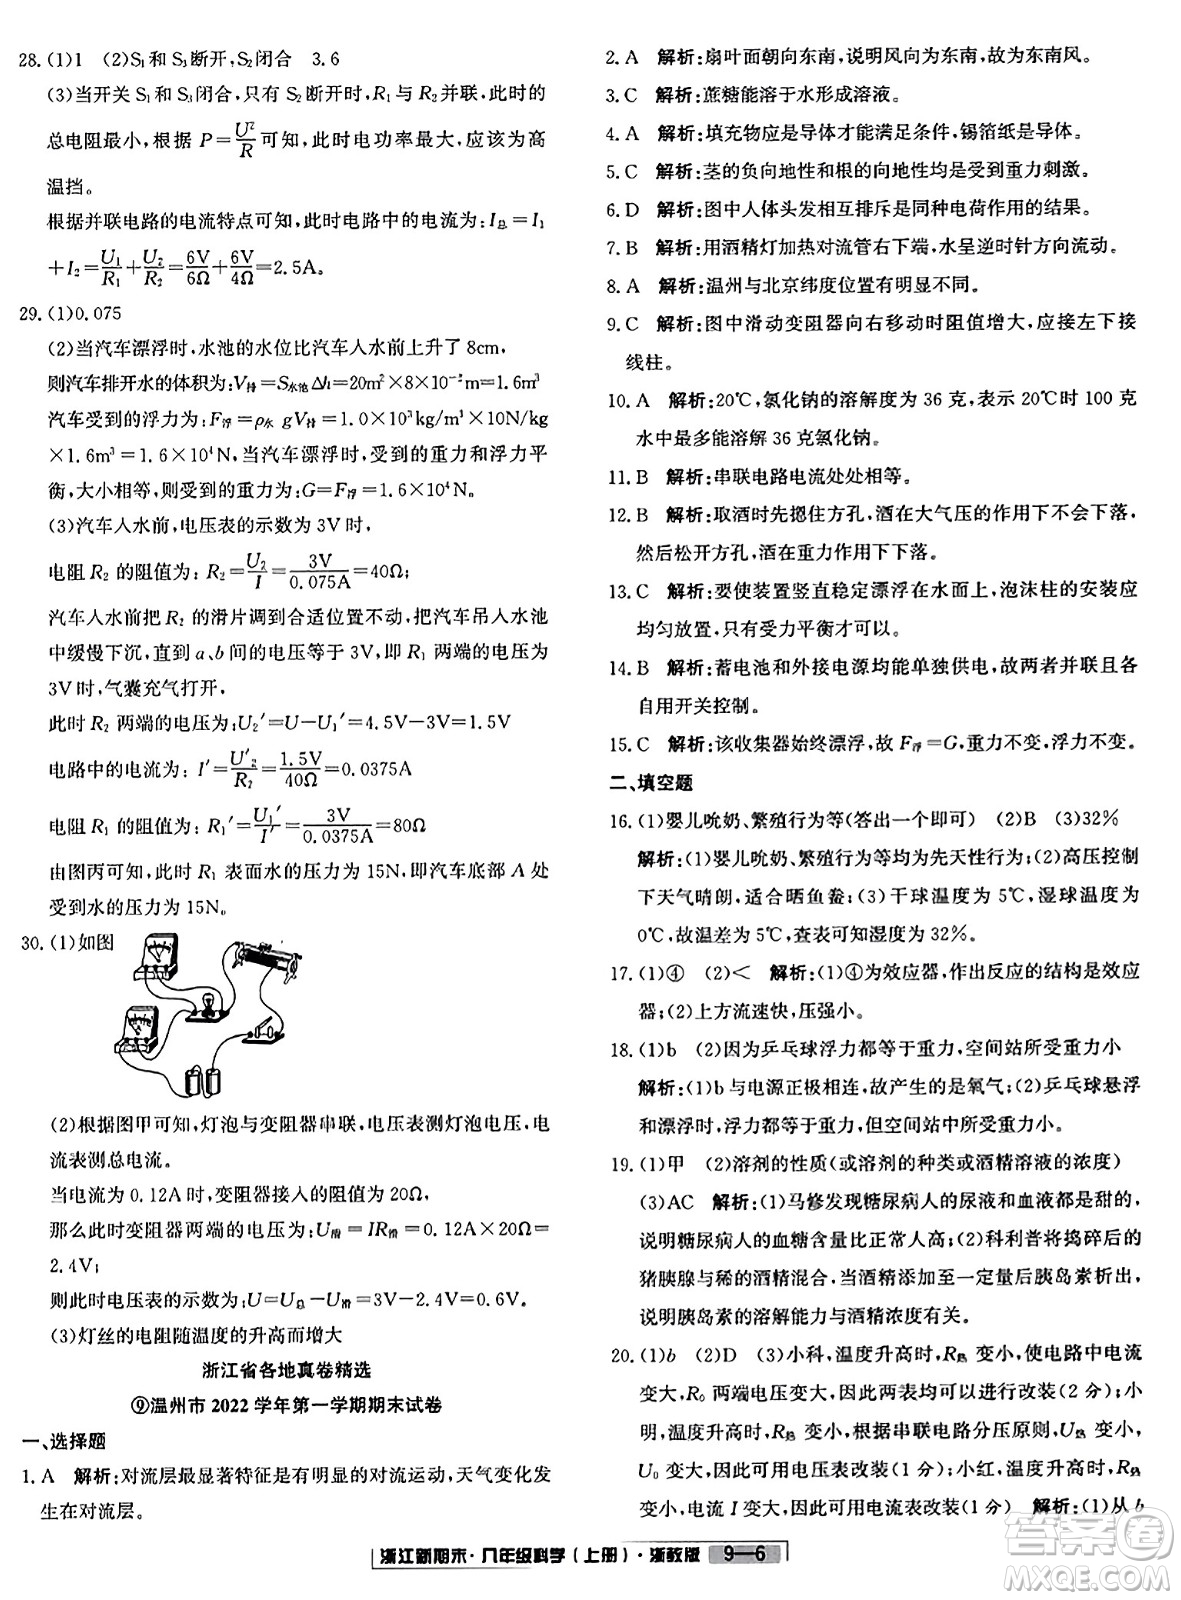 28. (1)1　(2)S₁和S₃断开,S₂闭合　3.6
(3)当开关S₁和S₃闭合,只有S₂断开时,R₁与R₂并联,此时的
总电阻最小,根据 P=U²/R 可知,此时电功率最大,应该为高
温挡。
根据并联电路的电流特点可知,此时电路中的电流为:I总=I₁
+I₂=U₁/R₁+U₂/R₂=6V/6Ω+6V/4Ω=2.5A。
29. (1)0.075
(2)当汽车漂浮时,水池的水位比汽车入水前上升了8cm,
则汽车排开水的体积为:V排=S水池Δh=20m²×8×10⁻²m=1.6m³
汽车受到的浮力为:F浮=ρ水 gV排=1.0×10³kg/m³×10N/kg
×1.6m³=1.6×10⁴N,当汽车漂浮时,受到的重力和浮力平
衡,大小相等,则受到的重力为:G=F浮=1.6×10⁴N。
(3)汽车入水前,电压表的示数为3V时,
电阻R₂的阻值为:R₂=U₂/I=3V/0.075A=40Ω;
汽车入水前R₂的滑片调到合适位置不动,把汽车吊入水池
中缓慢下沉,直到a、b间的电压等于3V,即R₁两端的电压为
3V时,气囊充气打开,
此时R₂两端的电压为:U₂′=U−U₁′=4.5V−3V=1.5V
电路中的电流为:I′=U′₂/R₂=1.5V/40Ω=0.0375A
电阻R₁的阻值为:R₁′=U₁′/I′=3V/0.0375A=80Ω
由图丙可知,此时R₁表面水的压力为15N,即汽车底部A处
受到水的压力为15N。
30. (1)如图
(2)根据图甲可知,灯泡与变阻器串联,电压表测灯泡电压,电
流表测总电流。
当电流为0.12A时,变阻器接入的阻值为20Ω,
那么此时变阻器两端的电压为:U滑=IR滑=0.12A×20Ω=
2.4V;
则此时电压表的示数为:U=U总−U滑=3V−2.4V=0.6V。
(3)灯丝的电阻随温度的升高而增大
浙江省各地真卷精选
⑨温州市2022学年第一学期期末试卷
一、选择题
1. A　解析:对流层最显著特征是有明显的对流运动,天气变化发
生在对流层。
2. A　解析:扇叶面朝向东南,说明风向为东南,此时为东南风。
3. C　解析:蔗糖能溶于水形成溶液。
4. A　解析:填充物应是导体才能满足条件,锡箔纸是导体。
5. C　解析:茎的负向地性和根的向地性均是受到重力刺激。
6. D　解析:图中人体头发相互排斥是同种电荷作用的结果。
7. B　解析:用酒精灯加热对流管右下端,水呈逆时针方向流动。
8. A　解析:温州与北京纬度位置有差异。
9. C　解析:图中滑动变阻器向右移动时阻值增大,应接左下接
线柱。
10. A　解析:20℃,氯化钠的溶解度为36克,表示20℃时100克
水中最多能溶解36克氯化钠。
11. B　解析:串联电路电流处处相等。
12. B　解析:取酒时先摁住方孔,酒在大气压的作用下不会下落,
然后松开方孔,酒在重力作用下下落。
13. C　解析:要使装置竖直稳定漂浮在水面上,泡沫柱的安装应
均匀放置,只有受力平衡才可以。
14. B　解析:蓄电池和外接电源均能单独供电,故两者并联且各
自用开关控制。
15. C　解析:该收集器始终漂浮,故F浮=G,重力不变,浮力不变。
二、填空题
16. (1)婴儿吮奶、繁殖行为等(答出一个即可)　(2)B　(3)32%
解析:(1)婴儿吮奶、繁殖行为等均为先天性行为;(2)高压控制
下天气晴朗,适合晒鱼鲞;(3)干球温度为5℃,湿球温度为
0℃,故温差为5℃,查表可知湿度为32%。
17. (1)④　(2)<　解析:(1)④为效应器,作出反应的结构是效应
器;(2)上方流速快,压强小。
18. (1)b　(2)因为乒乓球浮力都等于重力,空间站所受重力小
解析:(1)b与电源正极相连,故产生的是氧气;(2)乒乓球悬浮
和漂浮时,浮力都等于重力,但空间站中所受重力小。
19. (1)甲　(2)溶剂的性质(或溶剂的种类或酒精溶液的浓度)
(3)AC　解析:(1)马修发现糖尿病人的尿液和血液都是甜的,
说明糖尿病人的血糖含量比正常人高;(2)科利普将捣碎后的
猪胰腺与稀的酒精混合,当酒精加至一定量后胰岛素析出,
说明胰岛素的溶解能力与酒精浓度有关。
20. (1)b　(2)D　(3)小科,温度升高,R热变小,使电路中电流
变大,R₀两端电压变大,因此可用电压表改装(2分)
或者温度升高,R热变小,根据串联电路分压原则,U热变小,
U₀变大,因此可用电压表改装(1分)小红,温度升高,R热
变小,电流I变大,因此可用电流表改装(1分)　解析:(1)从b
浙江新期末·八年级科学(上册)·浙教版　9—6
答案圈
MXQE.COM